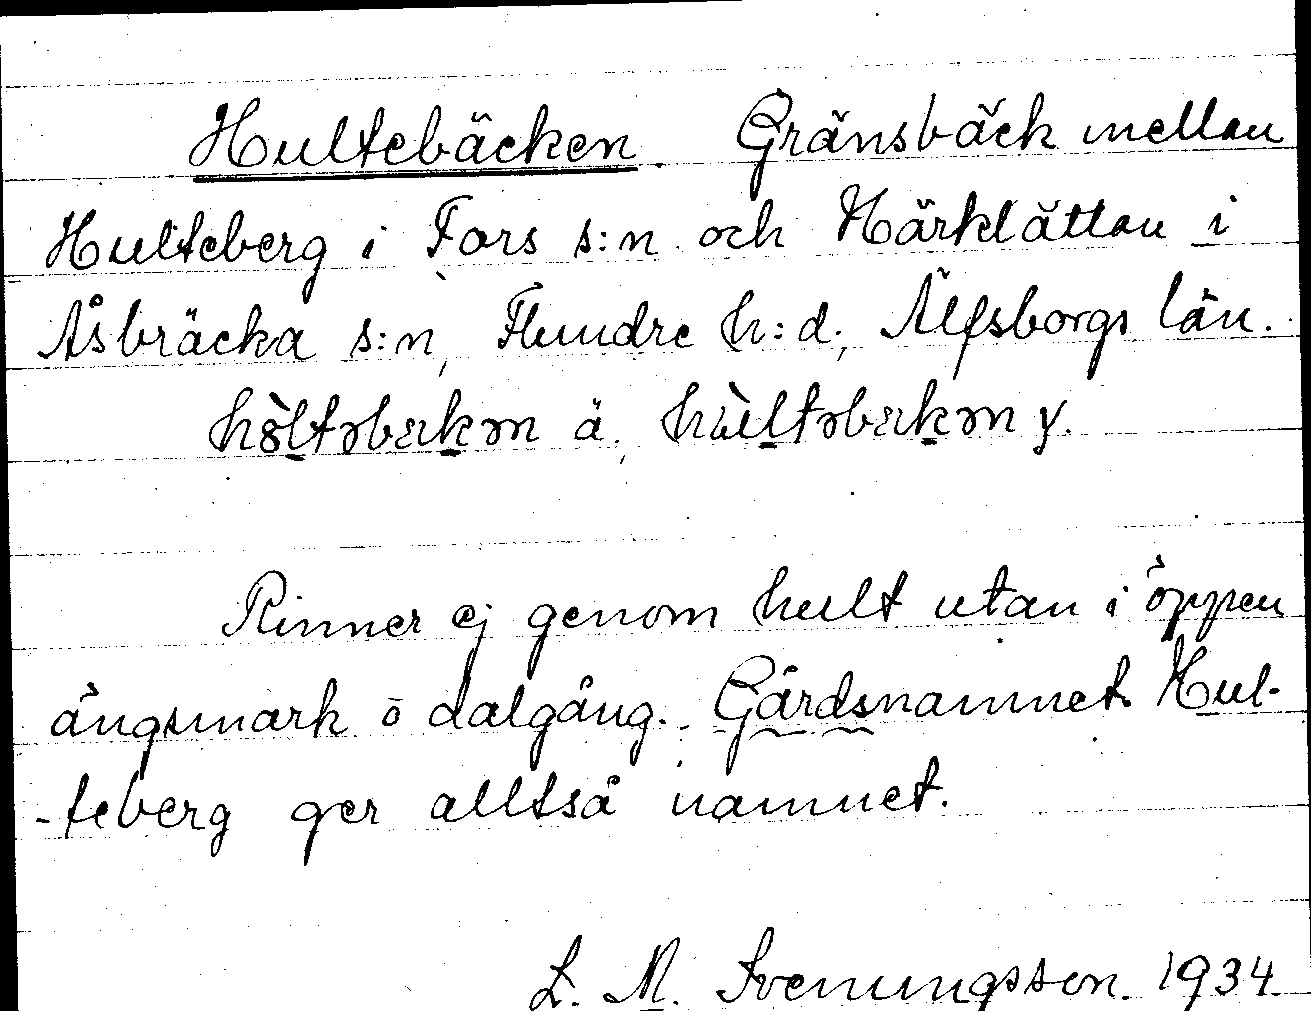 Hultebäcken. Gränsbäck mellan
Hulteberg i Fors s:n och Härklättan i
Åsbräcka s:n, Flundre h:d, Älfsborgs län.
ä, y.
Rinner ej genom hult utan i öppen
ängsmark o dalgång. Gårdsnamnet Hul-
-teberg ger alltså namnet.
L. M. Svenungsson. 1934